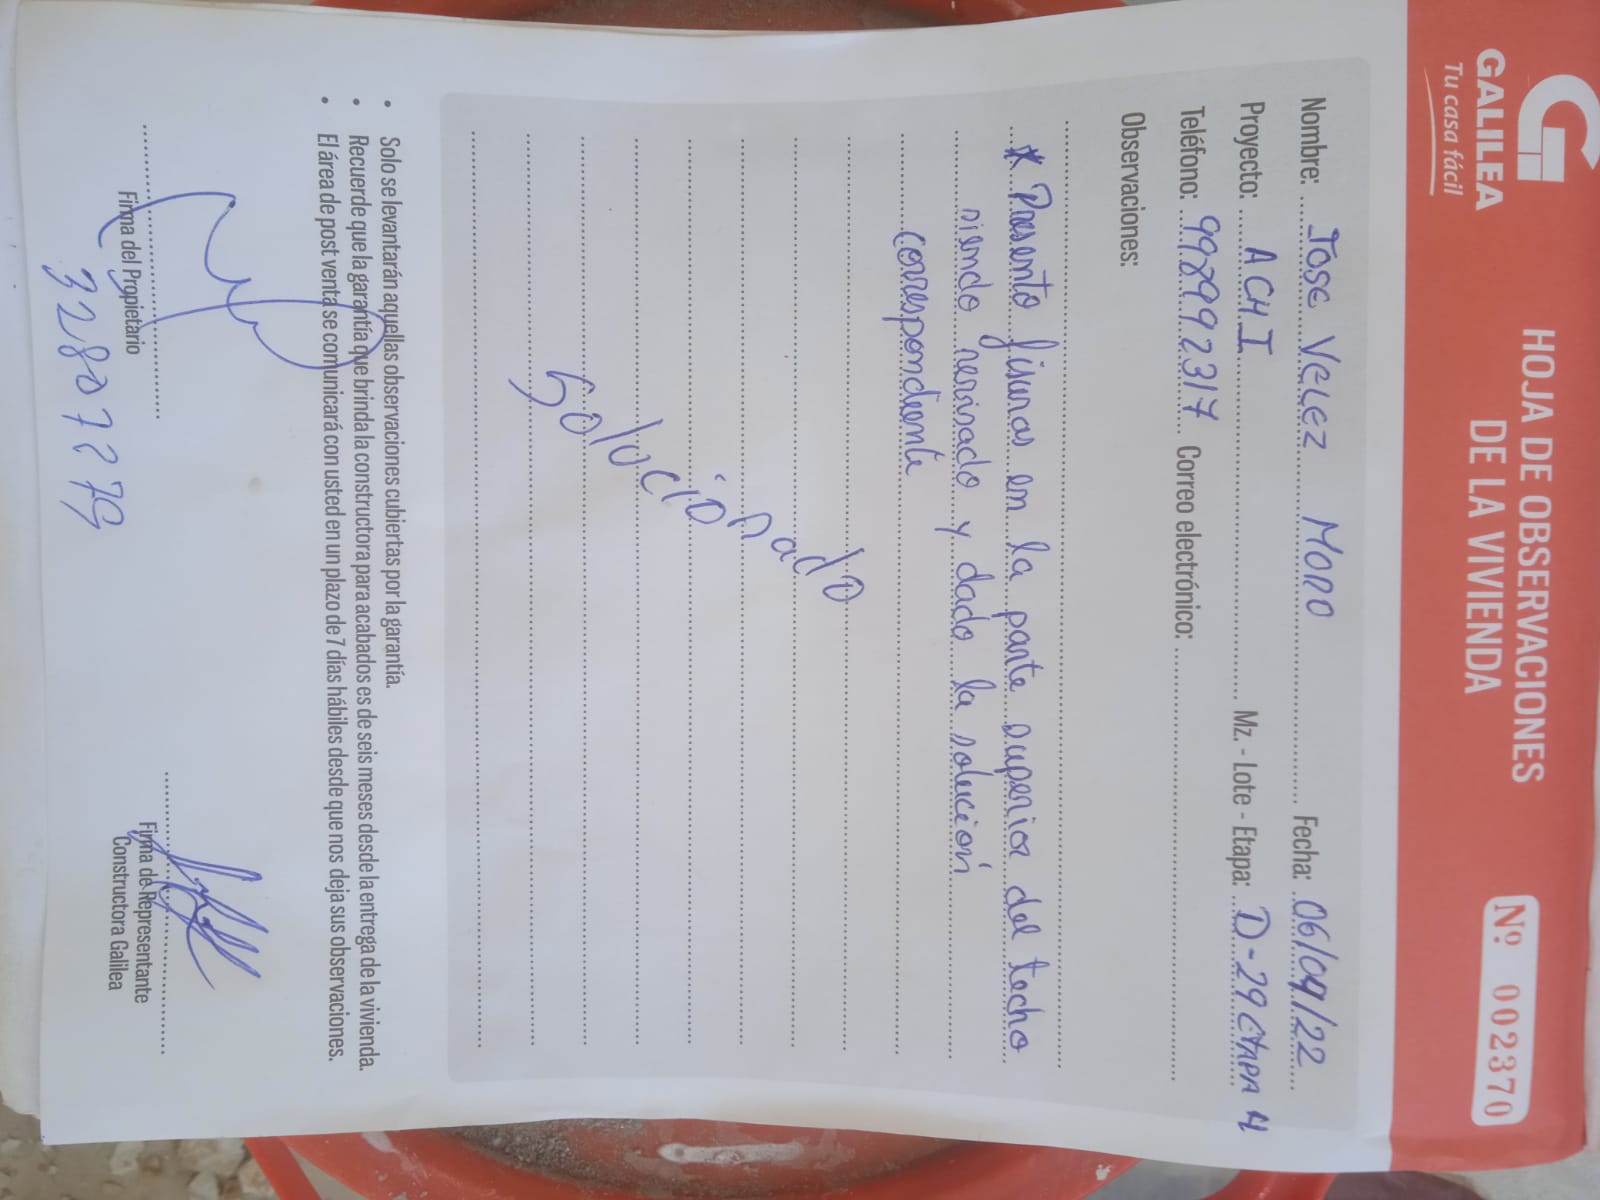 GALILEA
Tu casa fácil
HOJA DE OBSERVACIONES
DE LA VIVIENDA
Nº 002370
Nombre: JOSE VELEZ MORO Fecha: 06/09/22
Proyecto: ACH I Mz. - Lote - Etapa: D-29 ETAPA 4
Teléfono: 998992317 Correo electrónico:
Observaciones:
* Presento fisuras en la parte superior de techo
siendo revisado y dado la solución
correspondiente
Solucionado
• Solo se levantarán aquellas observaciones cubiertas por la garantía.
• Recuerde que la garantía que brinda la constructora para acabados es de seis meses desde la entrega de la vivienda.
• El área de post venta se comunicará con usted en un plazo de 7 días hábiles desde que nos deja sus observaciones.
Firma del Propietario
Firma de Representante
Constructora Galilea